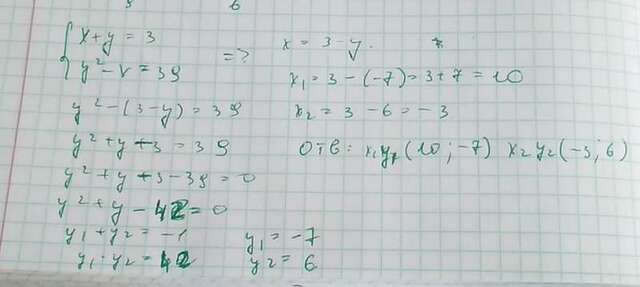 6
x+y=3
y²-x=39
=>
x = 3-y.
x₁=3-(-7)=3+7=10
y²-(3-y)=39
x₂=3-6=-3
y²+y-3=39
Отв: x₁y₁(10;-7) x₂y₂(-3;6)
y²+y-3-39=0
y²+y-42=0
y₁+y₂=-1
y₁=-7
y₁·y₂=42
y₂=6